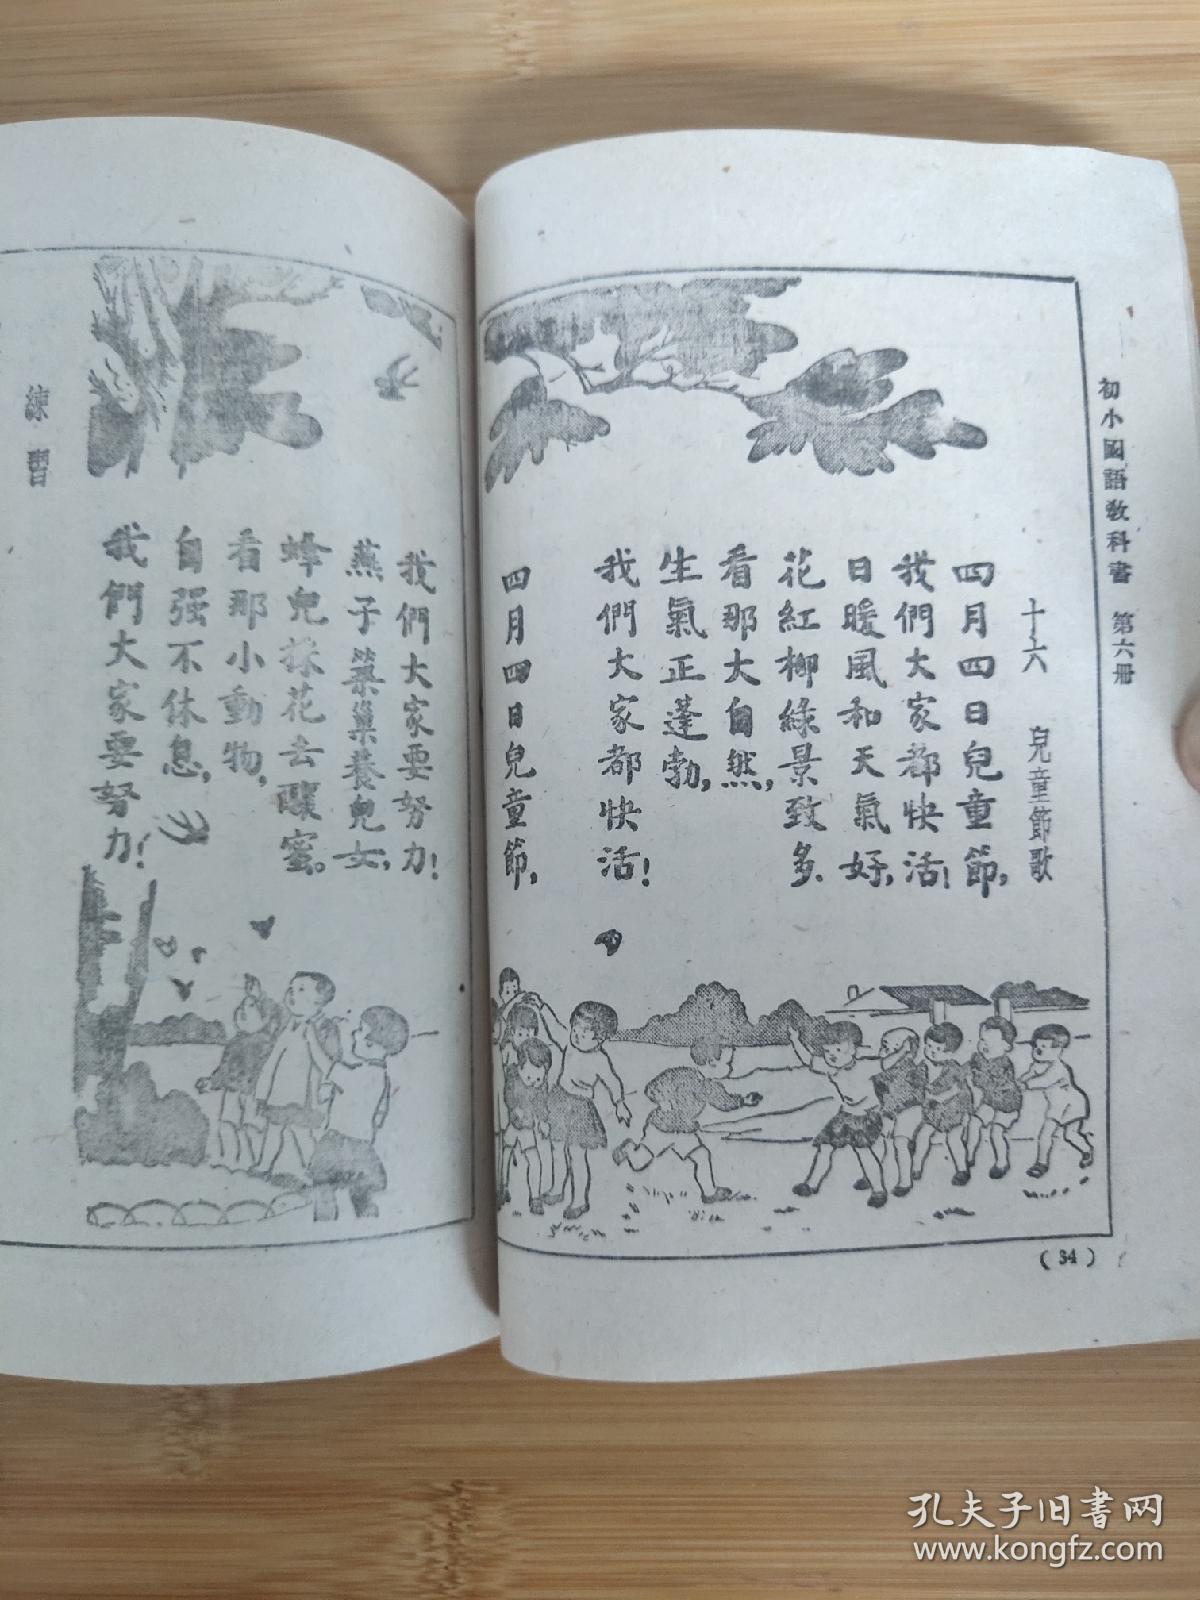 初小國語教科書　第六册
十六　兒童節歌
四月四日兒童節,
我們大家都快活!
日暖風和天氣好,
花紅柳綠景致多.
看那大自然,
生氣正蓬勃,
我們大家都快活!
四月四日兒童節,
(34)
我們大家要努力!
燕子築巢養兒女,
蜂兒採花去釀蜜。
看那小動物,
自强不休息,
我們大家要努力!
練習
孔夫子旧书网
www.kongfz.com